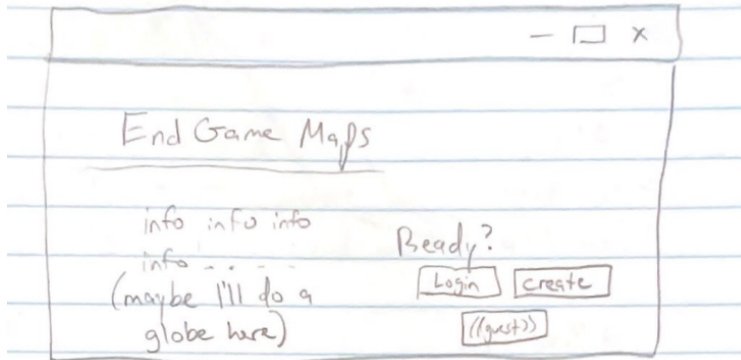 End Game Maps
info info info
info - - - -
(maybe I'll do a
globe here)
Ready?
Login create
((guest))